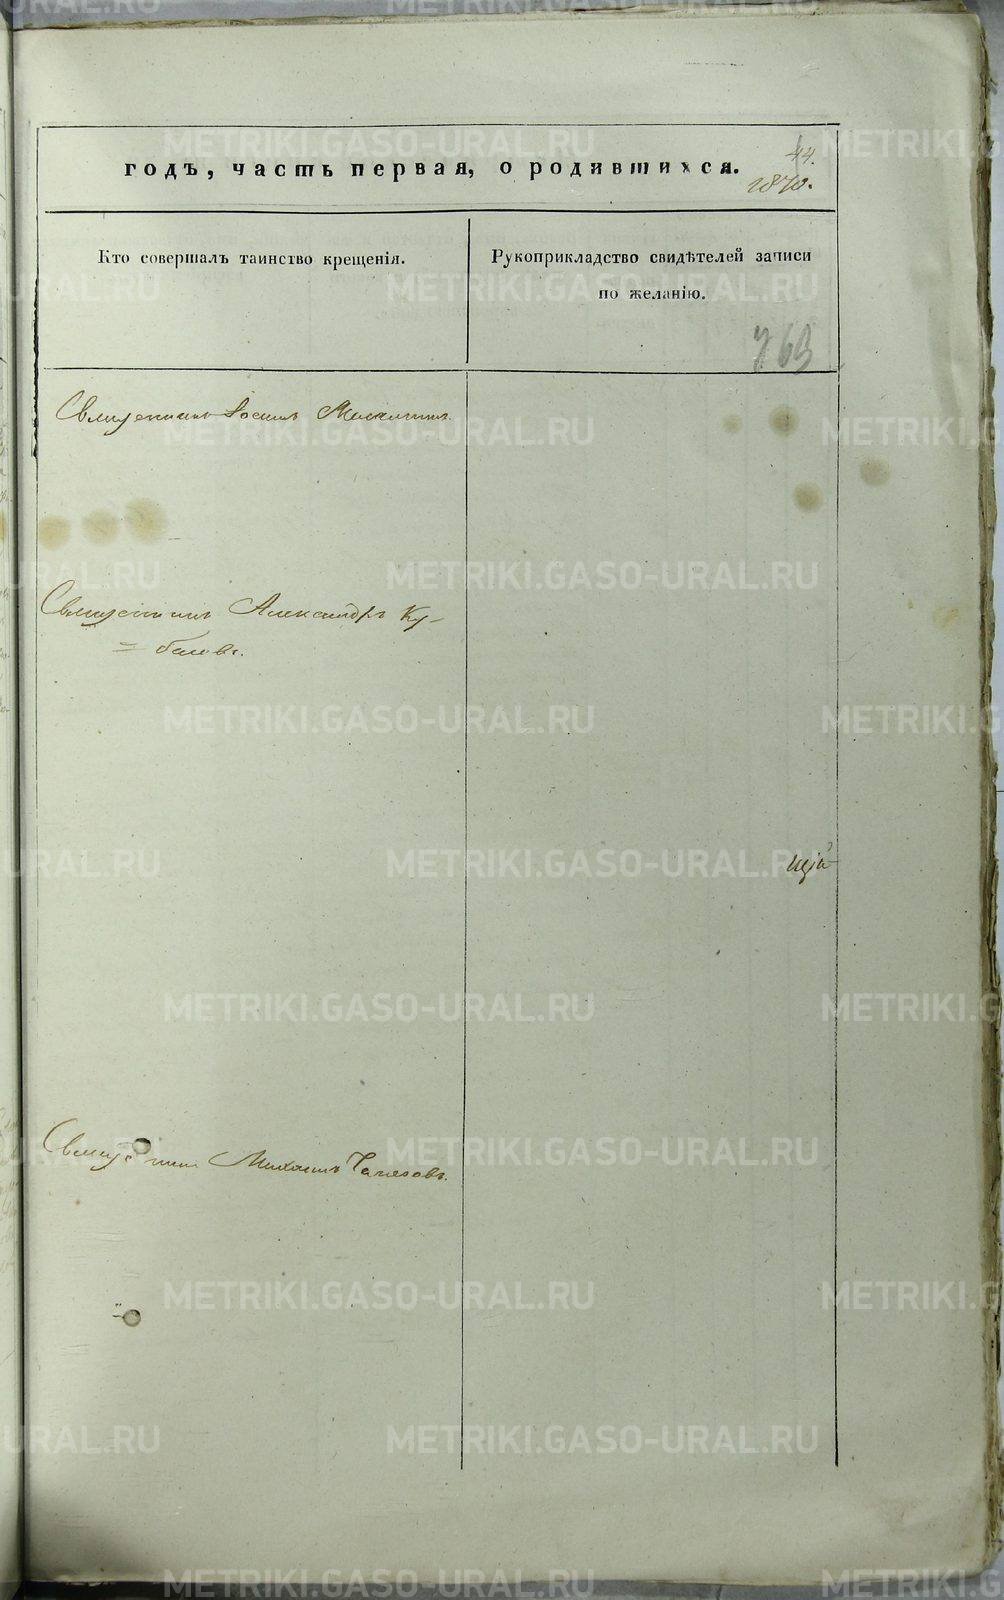 годъ, часть первая, о родившихся.
44.
1870.
Кто совершалъ таинство крещенія.
Рукоприкладство свидѣтелей записи
по желанію.
763
Священникъ
Священникъ Александръ Ку-
= баевъ.
Священникъ Михаилъ
METRIKI.GASO-URAL.RU